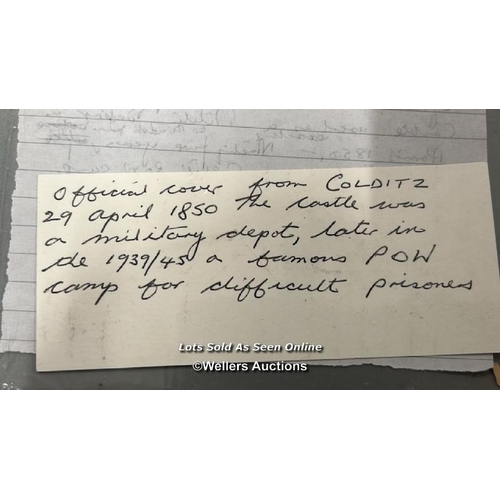 Official cover from COLDITZ
29 April 1850 The castle was
a military depot, later in
the 1939/45 a famous POW
camp for difficult prisoners
Lots Sold As Seen Online
©Wellers Auctions